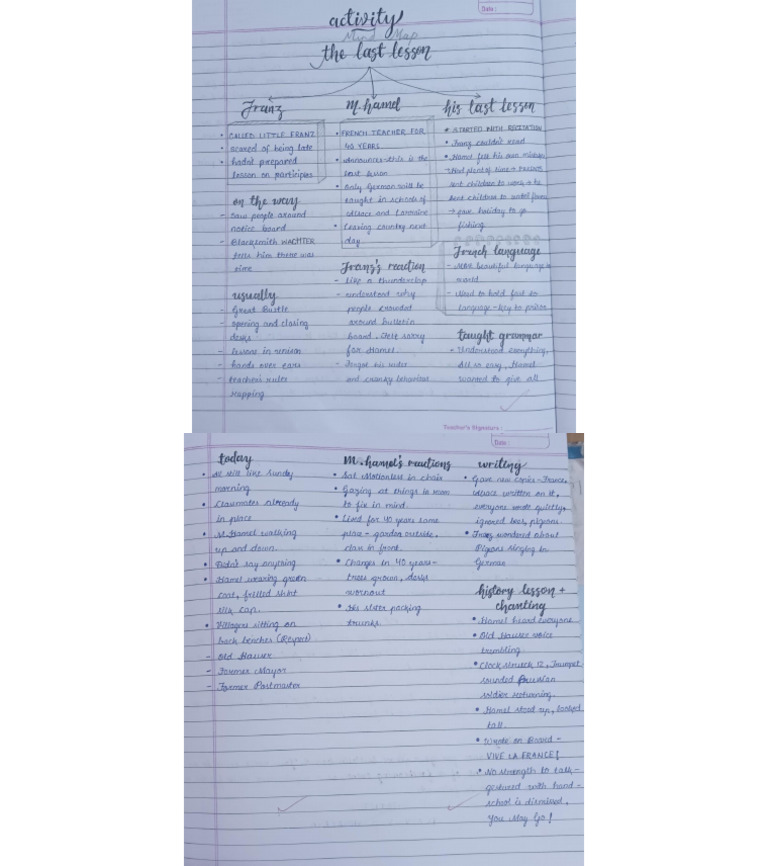 Date:
activity
Mind Map
the last lesson
Franz
• CALLED LITTLE FRANZ
• scared of being late
• hadn't prepared
lesson on participles
on the way
- Saw people around
notice board
- Blacksmith WACHTER
tells him there was
time
usually
- Great Bustle
- opening and closing
desks
- lessons in unison
- hands over ears
- teacher's ruler
rapping
M. hamel
• FRENCH TEACHER FOR
40 YEARS
• Announces-this is the
last lesson
• Only German will be
taught in schools of
Alsace and Lorraine
• Leaving country next
day
Franz's reaction
- Like a thunderclap
- understood why
people crowded
around bulletin
board, felt sorry
for Hamel.
- Forgot his ruler
and cranky behaviour
his last lesson
• STARTED WITH RECITATION
• Franz couldn't read
• Hamel felt his own mistake
sent children to work
sent children to water
→ gave holiday to go
fishing.
French language
- Most beautiful language in
world
- Need to hold fast to
language - key to prison
taught grammar
- Understood everything,
All so easy, Hamel
wanted to give all
Teacher's Signature:
Date:
today
• All still like Sunday
morning
• Classmates already
in place
• M.Hamel walking
up and down.
• Didn't say anything
• Hamel wearing green
coat, frilled shirt
cap.
• Villagers sitting on
back benches (Respect)
- Old Hauser
- Former Mayor
- Former Postmaster
M. hamel's reactions
• Sat Motionless in chair
• Gazing at things in room
to fix in mind.
• Lived for 40 years same
place - garden outside,
class in front.
• Changes in 40 years-
trees grown, desks
wornout
• His sister packing
trunks.
writing
• Gave new copies - France,
Alsace written on it,
everyone wrote quietly,
ignored bees, pigeons.
• Franz wondered about
Pigeons singing in
German
history lesson +
chanting
• Hamel heard everyone
• Old Hauser voice
trembling
• Clock struck 12, Trumpet
sounded Prussian
soldier returning.
• Hamel stood up, looked
tall.
• Wrote on Board -
VIVE LA FRANCE!
• No strength to talk -
gestured with hand -
school is dismissed,
You May Go!